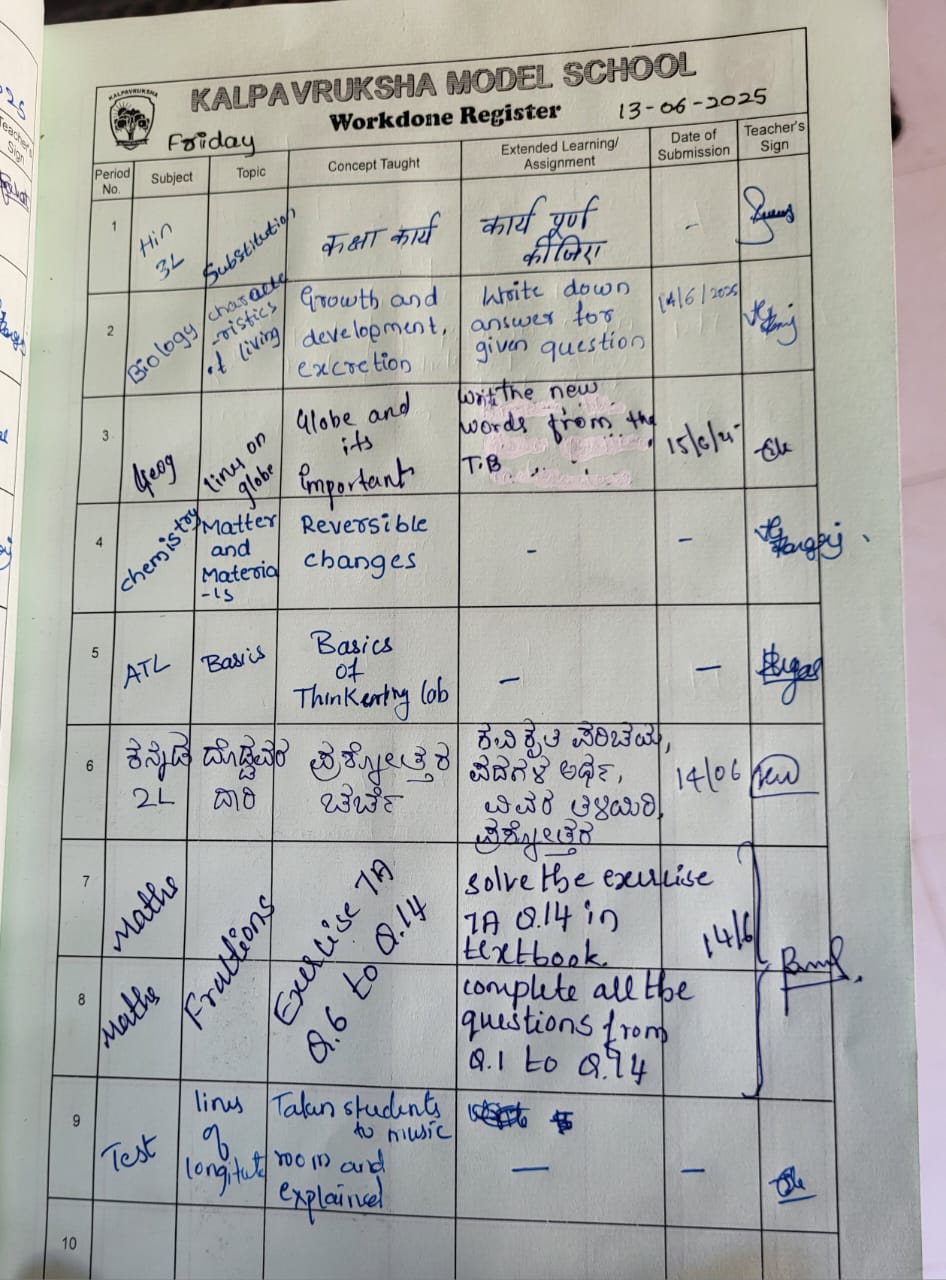 KALPAVRUKSHA
KALPAVRUKSHA MODEL SCHOOL
Workdone Register
13-06-2025
Friday
Period No.
Subject
Topic
Concept Taught
Extended Learning/
Assignment
Date of
Submission
Teacher's
Sign
1
Hin
3L
Substitution
कक्षा कार्य
कार्य पूर्ण
कीजिए
-
2
Biology
characte
-ristics
of living
Growth and
development,
excretion
Write down
answer for
given question
14/6/2025
3
Geog
lines on
globe
Globe and
its
important
Write the new
words from the
T.B
15/6/25
4
chemistry
Matter
and
Materia
-ls
Reversible
changes
-
-
5
ATL
Basis
Basics
of
Thinkering lab
-
-
6
ಕನ್ನಡ
2L
ದೊಡ್ಡವರ
ದಾರಿ
ಪ್ರಶ್ನೋತ್ತರ
ಚರ್ಚೆ
ಕವಿ ಕೃತಿ ಪರಿಚಯ,
ಪದಗಳ ಅರ್ಥ,
ವಿವರ ತಿಳಿಯಿರಿ,
ಪ್ರಶ್ನೋತ್ತರ
14/06
7
Maths
Fractions
Exercise 7A
Q.6 to Q.14
solve the exercise
7A Q.14 in
textbook.
14/6
8
Maths
complete all the
questions from
Q.1 to Q.14
9
Test
lines
of
longitute
Taken students
to music
room and
explained
-
-
10